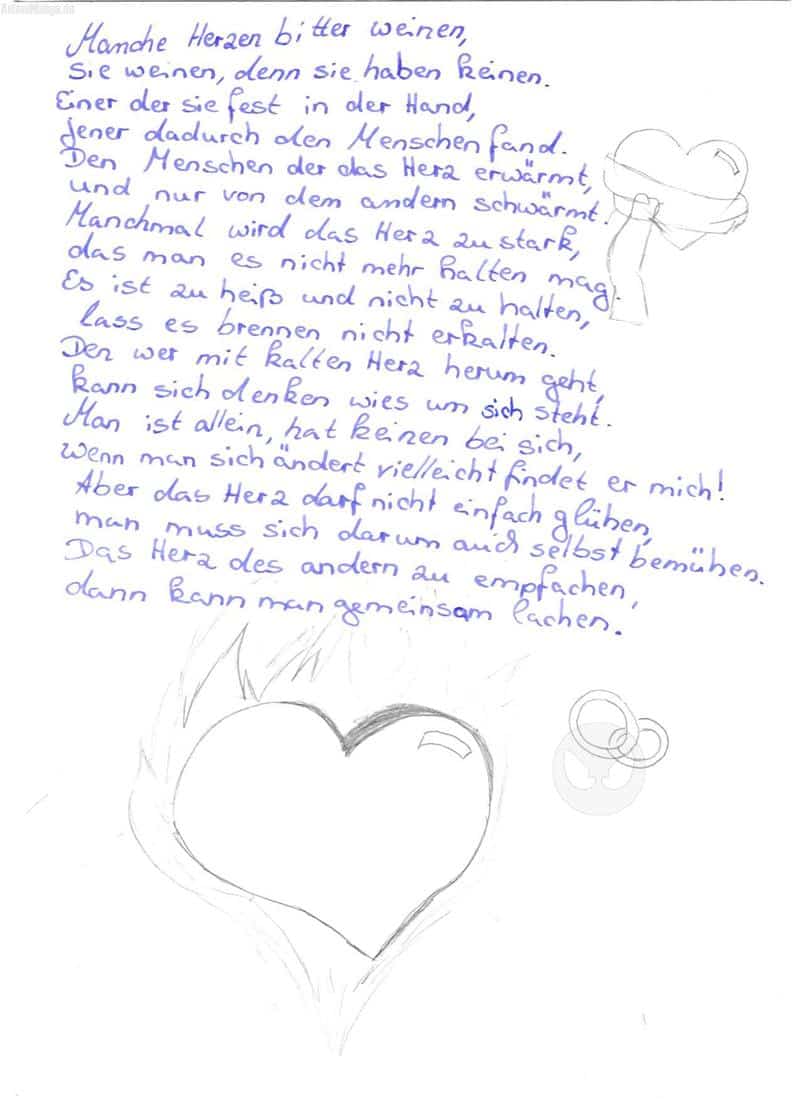 Manche Herzen bitter weinen,
sie weinen, denn sie haben keinen.
Einer der sie fest in der Hand,
jener dadurch den Menschen fand.
Den Menschen der das Herz erwärmt,
und nur von dem andern schwärmt.
Manchmal wird das Herz zu stark,
das man es nicht mehr halten mag.
Es ist zu heiß und nicht zu halten,
lass es brennen nicht erkalten.
Den wer mit kalten Herz herum geht,
kann sich denken wies um sich steht.
Man ist allein, hat keinen bei sich,
Wenn man sich ändert vielleicht findet er mich!
Aber das Herz darf nicht einfach glühen,
man muss sich darum auch selbst bemühen.
Das Herz des andern zu empfachen,
dann kann man gemeinsam lachen.